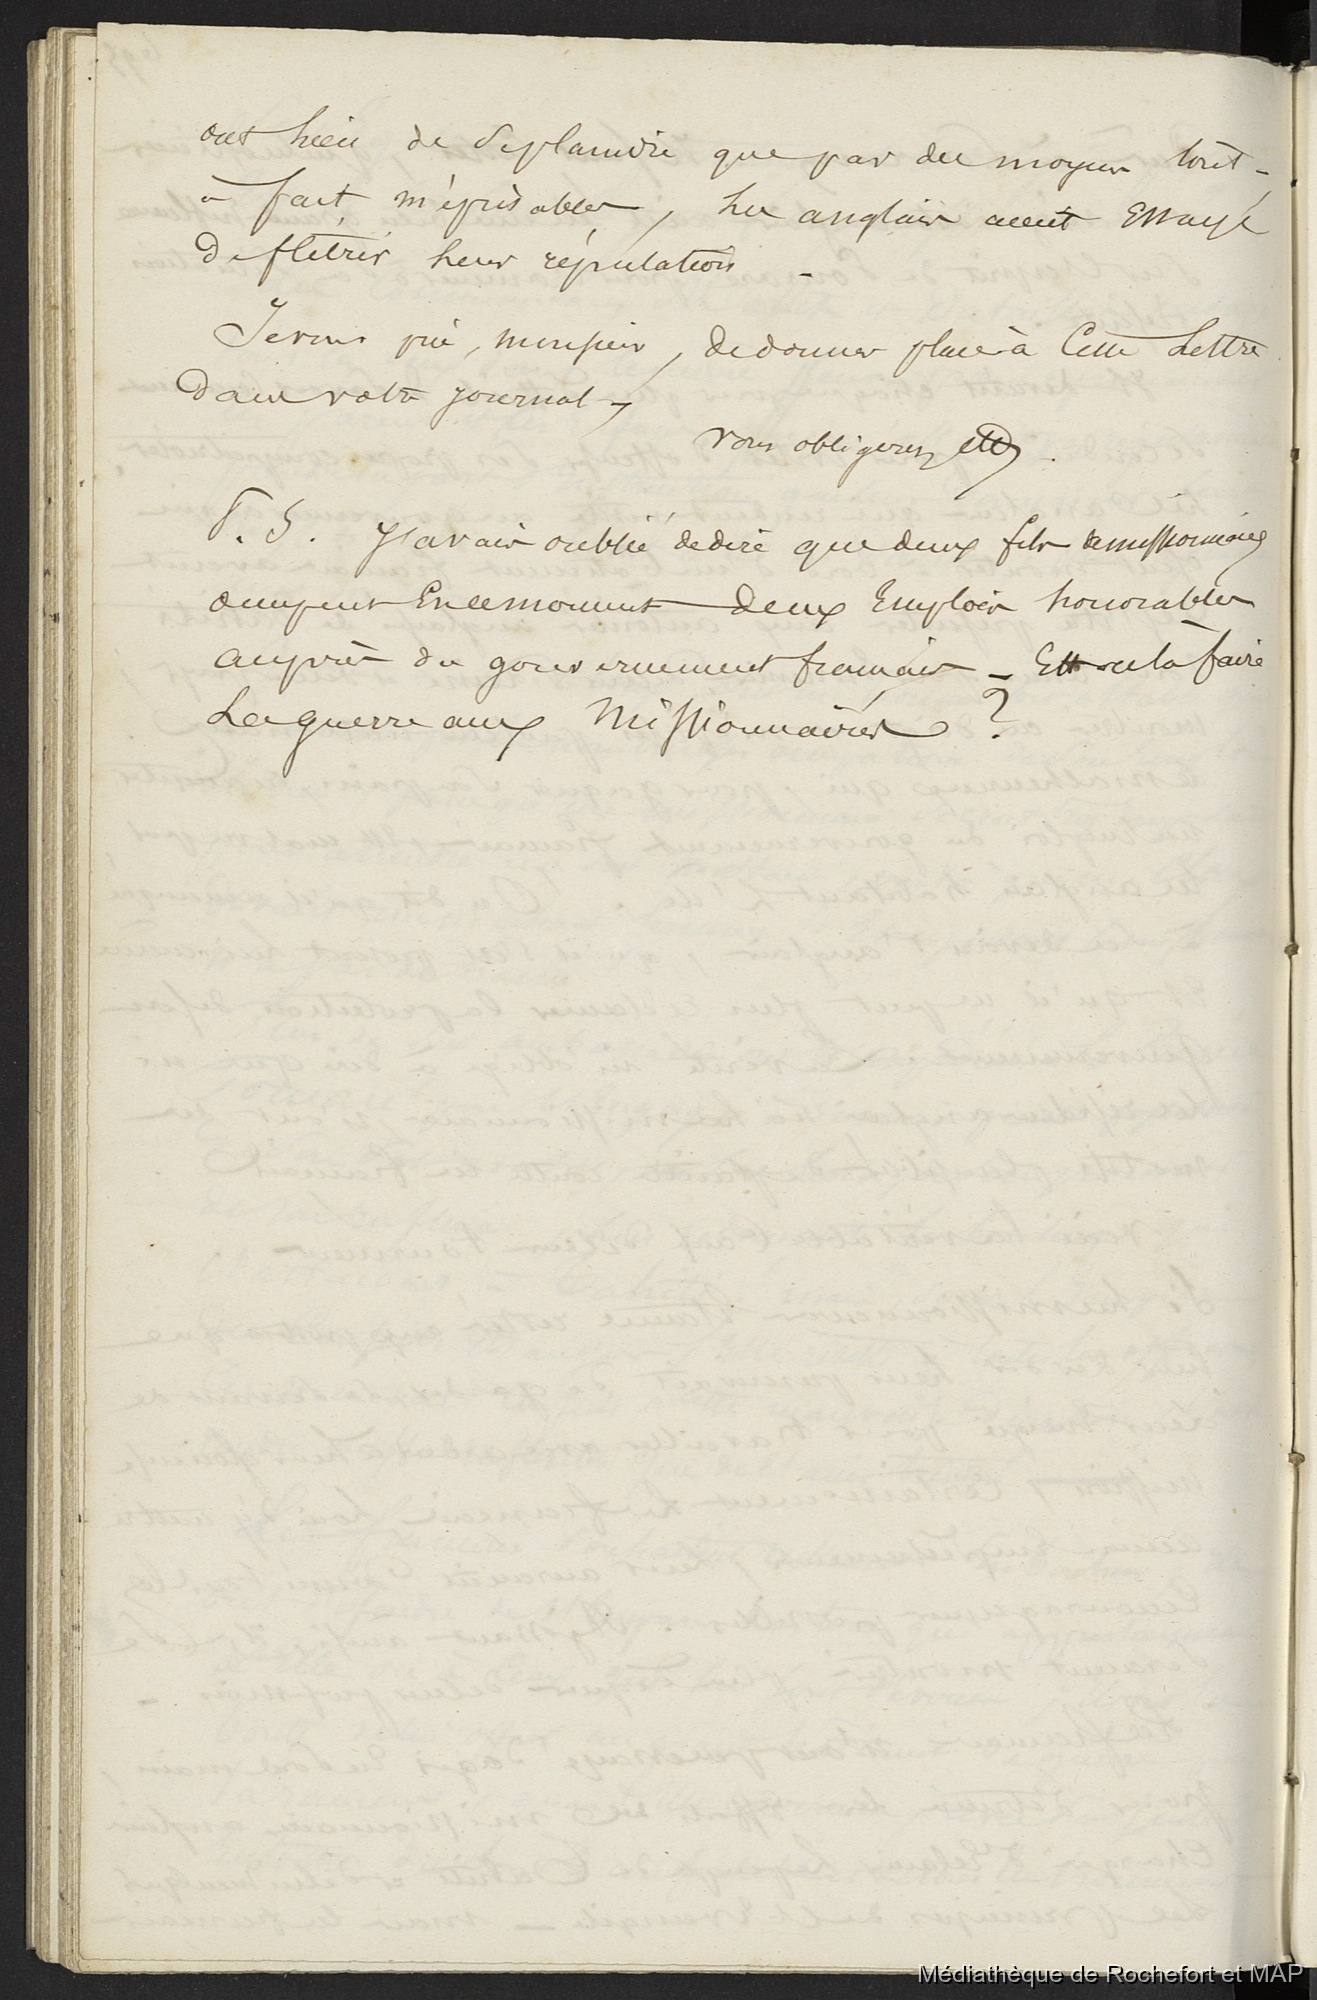 ont lieu de Se plaindre que par des moyens tout-
à fait méprisables, les anglais aient Essayé
De flétrir leur réputation -
Je vous prie, monsieur, de donner place à Cette Lettre
Dans votre journal,
vous obligerez etc.
P. S. J'avais oublié de dire que deux fils de missionnaires
occupent En ce moment Deux Emplois honorables
auprès du gouvernement français - Est ce là faire
La guerre aux Missionnaires ?
Médiathèque de Rochefort et MAP